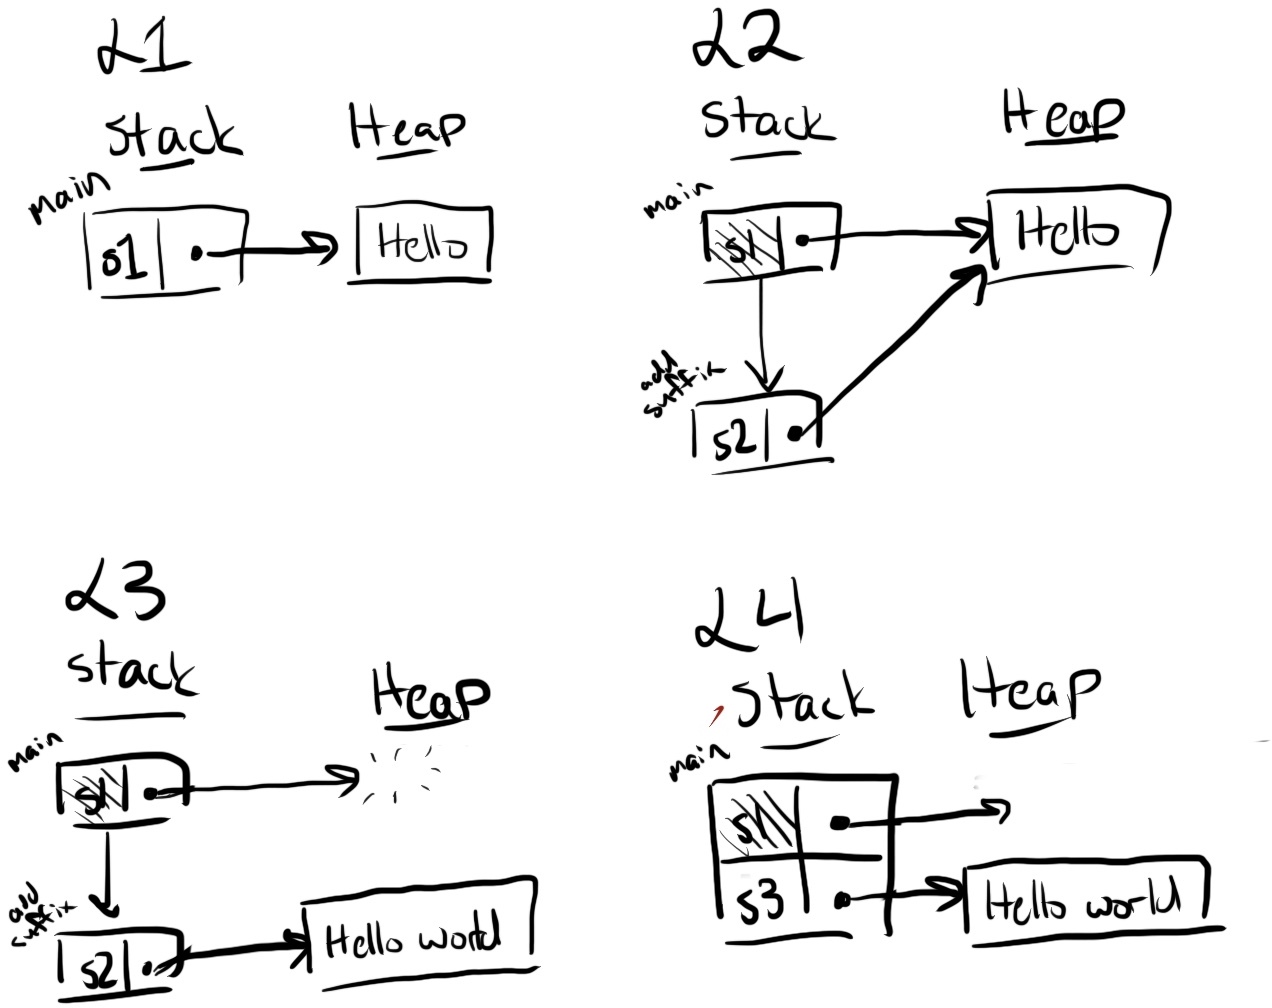 L1
Stack Heap
main
s1 Hello
L2
Stack Heap
main
s1 Hello
add
suffix
s2
L3
stack Heap
main
s1
add
suffix
s2 Hello world
L4
Stack Heap
main
s1
s3 Hello world